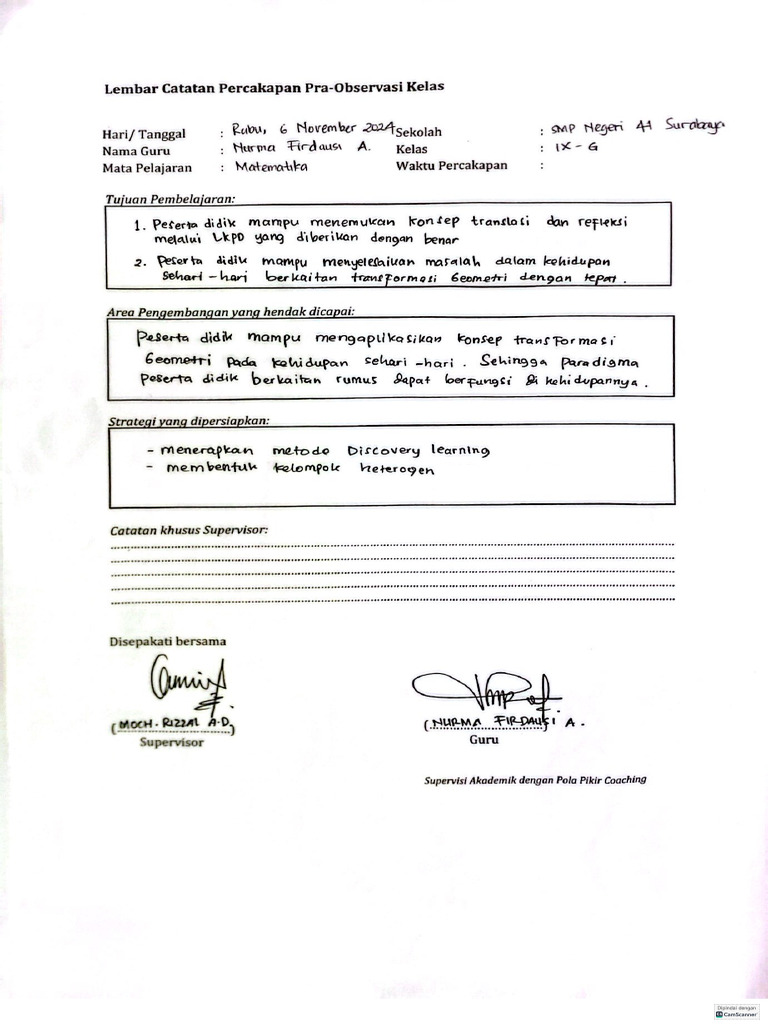 Lembar Catatan Percakapan Pra-Observasi Kelas
Hari/ Tanggal : Rabu, 6 November 2024 Sekolah : SMP Negeri 41 Surabaya
Nama Guru : Nurma Firdausi A. Kelas : IX - G
Mata Pelajaran : Matematika Waktu Percakapan :
Tujuan Pembelajaran:
1. Peserta didik mampu menemukan konsep translasi dan refleksi
melalui LKPD yang diberikan dengan benar
2. Peserta didik mampu menyelesaikan masalah dalam kehidupan
sehari-hari berkaitan transformasi Geometri dengan tepat.
Area Pengembangan yang hendak dicapai:
Peserta didik mampu mengaplikasikan konsep transformasi
Geometri pada kehidupan sehari-hari. Sehingga paradigma
peserta didik berkaitan rumus dapat berfungsi di kehidupannya.
Strategi yang dipersiapkan:
- menerapkan metode Discovery learning
- membentuk kelompok heterogen
Catatan khusus Supervisor:
Disepakati bersama
(MOCH. RIZZAL A.D.) (NURMA FIRDAUSI A.
Supervisor Guru
Supervisi Akademik dengan Pola Pikir Coaching
Dipindai dengan
CamScanner